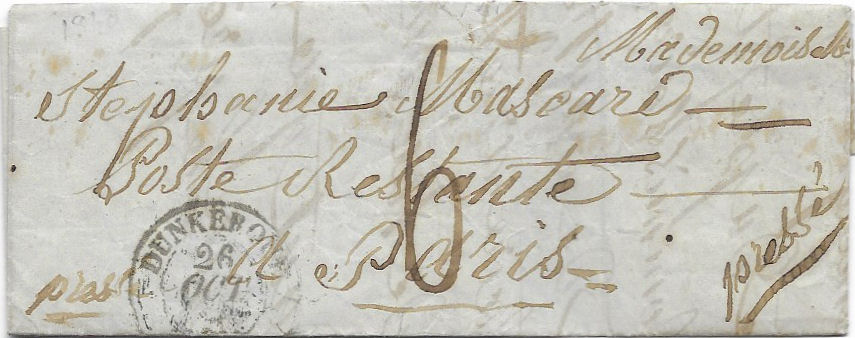 Mademoiselle
Stephanie Mascard
Poste Restante
a Paris
6
pressé
pressé
DUNKERQUE
26
OCT